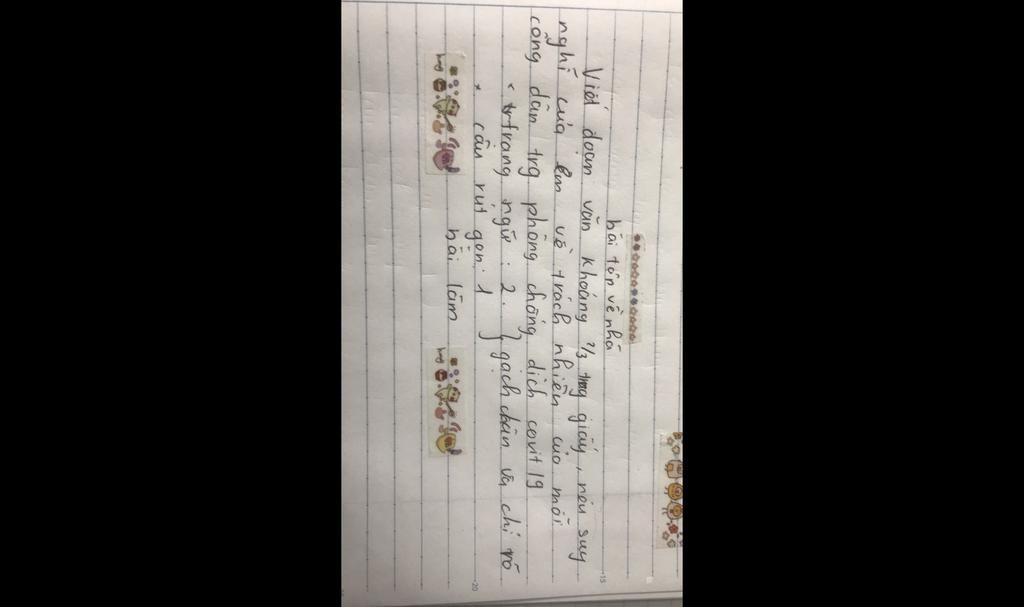 bài tập về nhà
Viết đoạn văn khoảng 2/3 trg giấy, nêu suy
nghĩ của em về trách nhiệm của mỗi
công dân trg phòng chống dịch covit 19
* trạng ngữ : 2 } gạch chân và chỉ rõ
* câu rút gọn : 1
bài làm
15
20